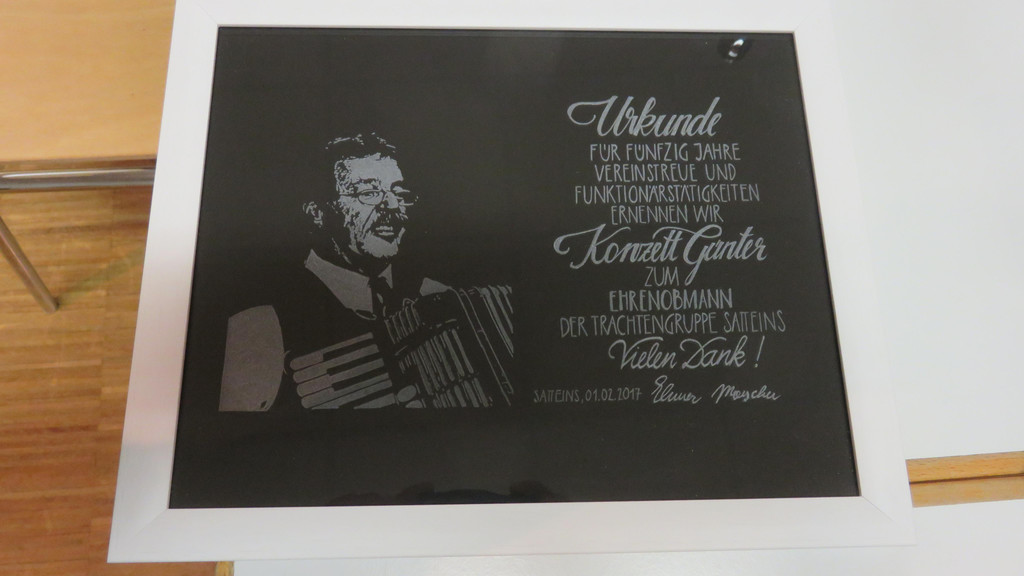 Urkunde
FÜR FÜNFZIG JAHRE
VEREINSTREUE UND
FUNKTIONÄRSTÄTIGKEITEN
ERNENNEN WIR
Konzett Günter
ZUM
EHRENOBMANN
DER TRACHTENGRUPPE SATTEINS
Vielen Dank!
SATTEINS, 01.02.2017 Elmar